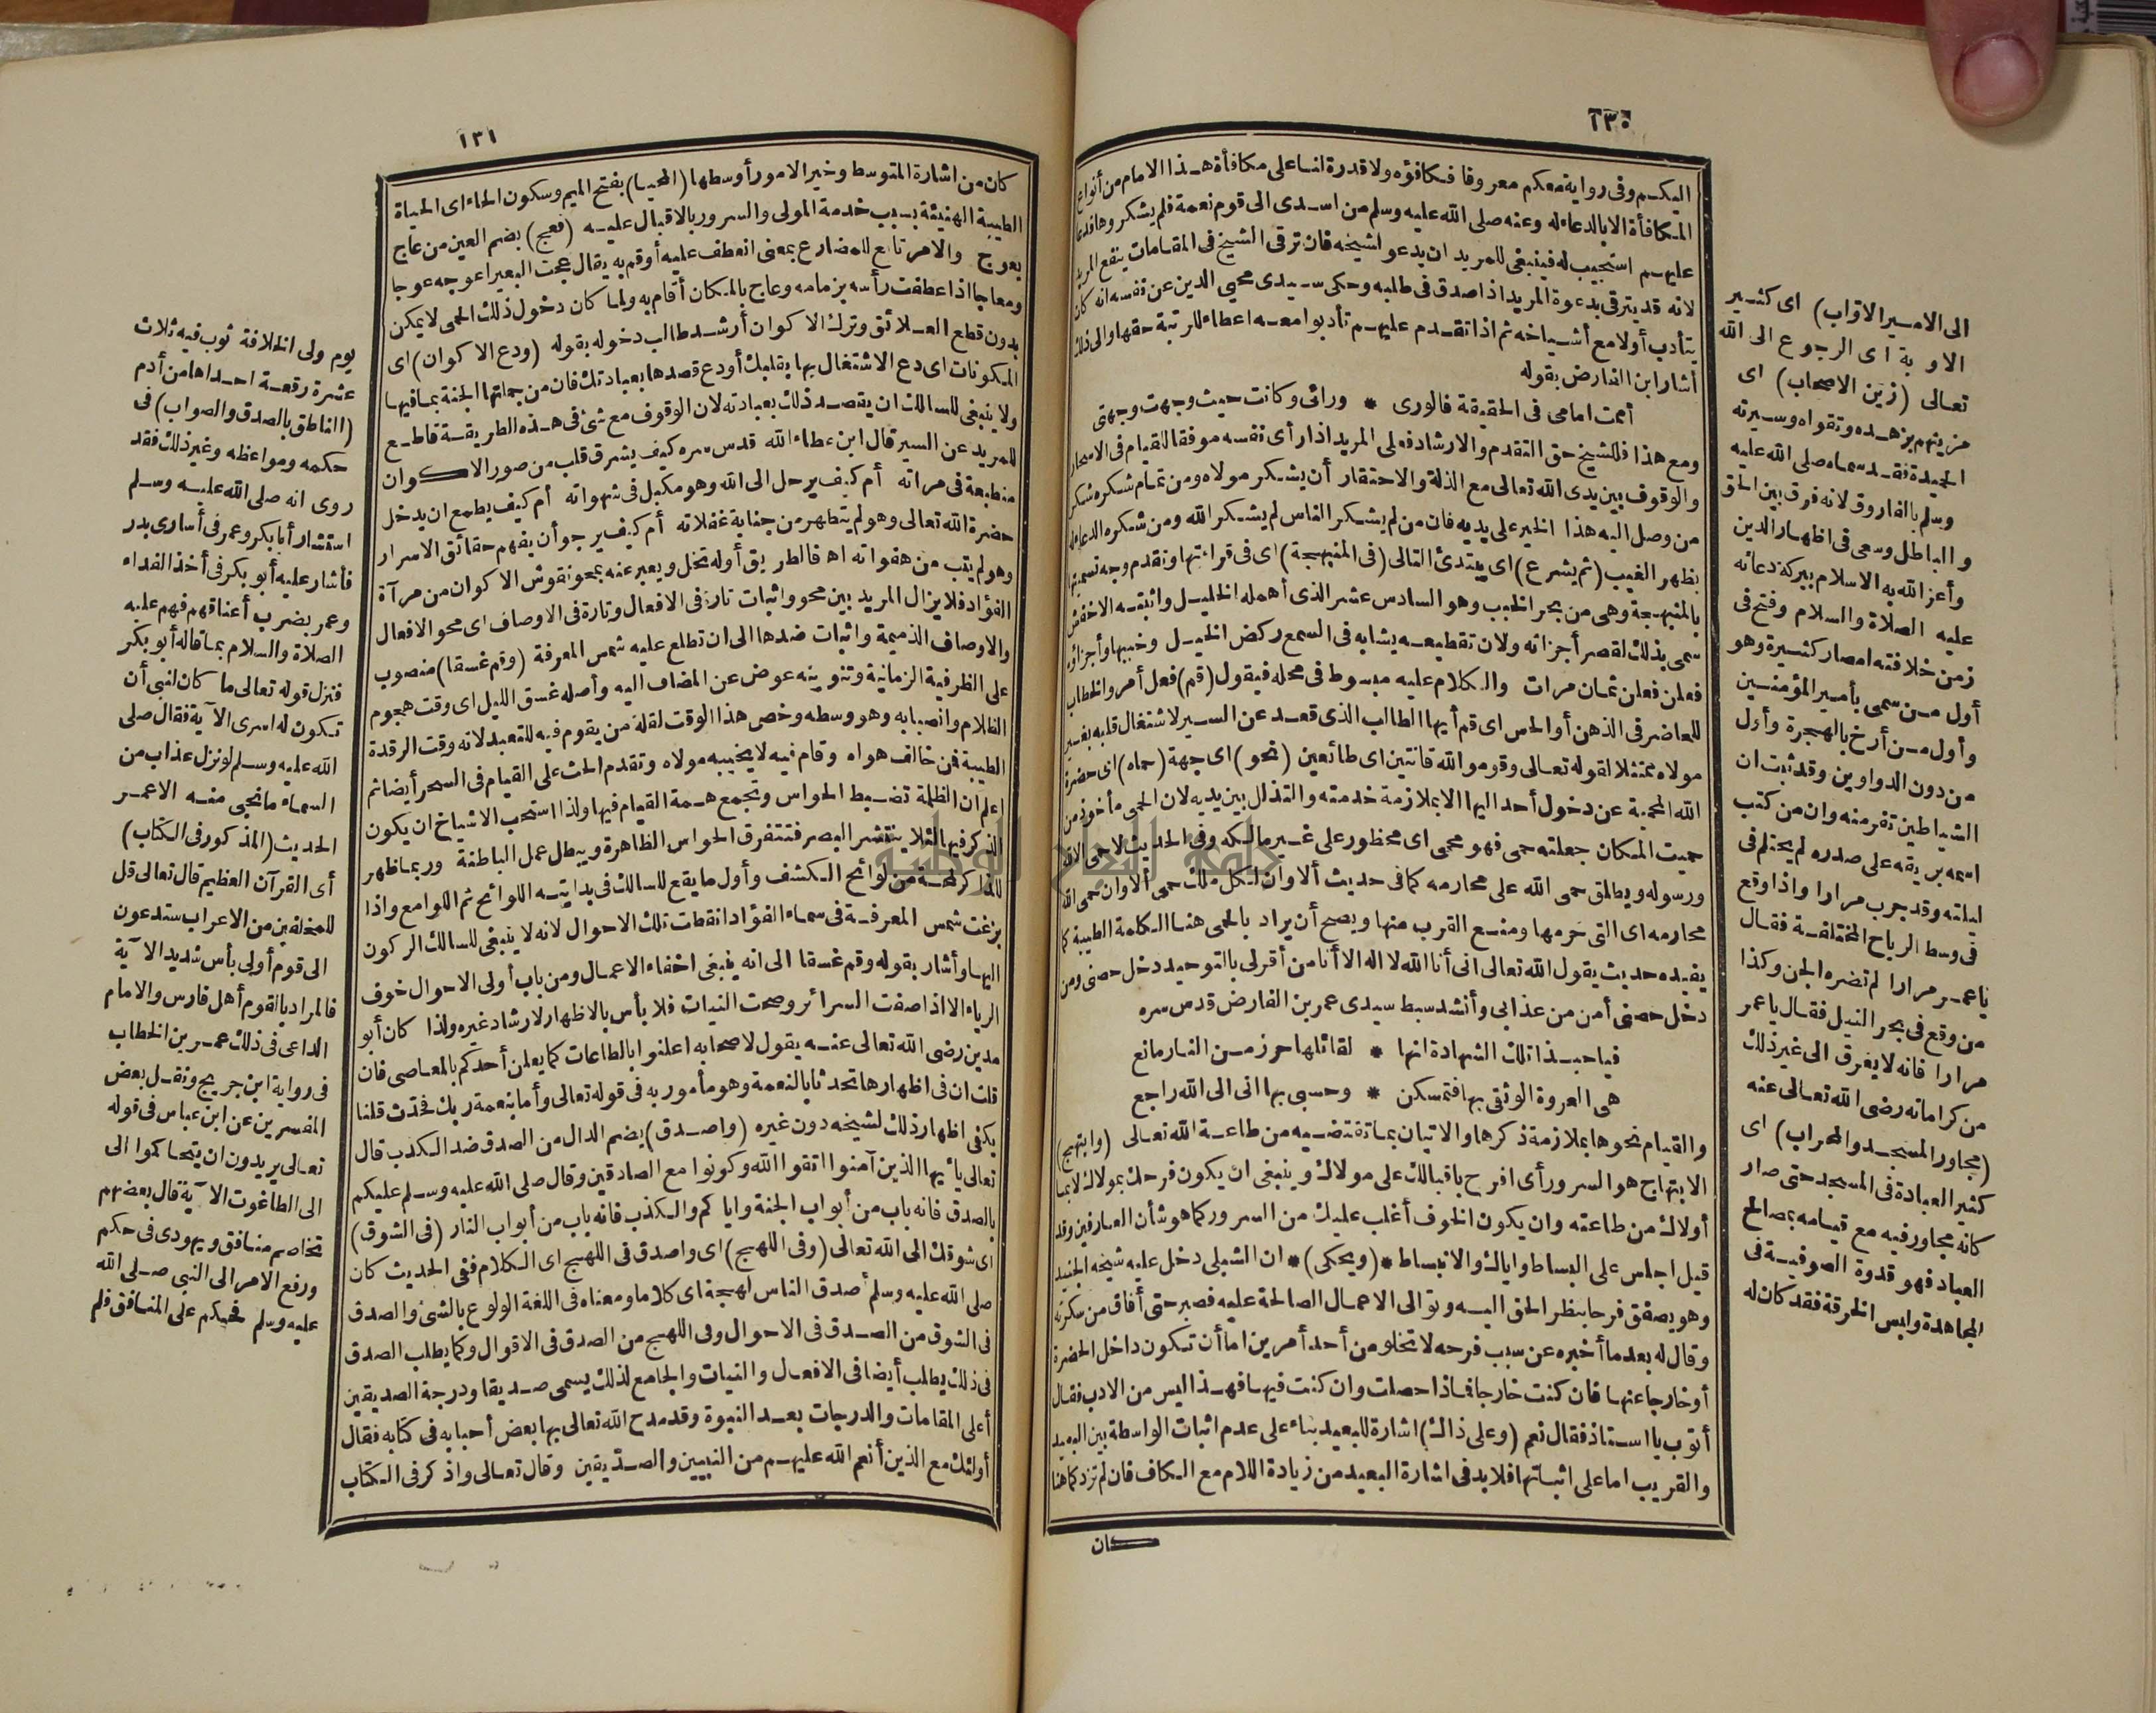 ١٣٠
اليكم وفى رواية معكم معروفا فكافؤه ولا قدرة لنا على مكافأة هذا الامام من أنواع
المكافأة الا بالدعاء له وعنه صلى الله عليه وسلم من اسدى الى قوم نعمة فلم يشكروها فدعا
عليهم استجيب له فينبغى للمريد ان يدعو لشيخه فان ترقى الشيخ فى المقامات ينفع المريد
لانه قد يترقى بدعوة المريد اذا صدق فى طلبه وحكى سيدى محيى الدين عن نفسه انه كان
يتأدب أولا مع أشياخه ثم اذا تقدم عليهم تأدبوا معه اعطاء للرتبة حقها والى ذلك
أشار ابن الفارض بقوله
أمت امامى فى الحقيقة فالورى * ورائى وكانت حيث وجهت وجهتى
ومع هذا فللشيخ حق التقدم والارشاد فعلى المريد اذا رأى نفسه موفقا للقيام فى الاسحار
والوقوف بين يدى الله تعالى مع الذلة والاحتقار أن يشكر مولاه ومن تمام شكره شكر
من وصل اليه هذا الخير على يديه فان من لم يشكر الناس لم يشكر الله ومن شكره الدعاء له
بظهر الغيب (ثم يشرع) اى يبتدئ التالى (فى المنبهجة) اى فى قراءتها وتقدم وجه تسميتها
بالمنبهجة وهى من بحر الخبب وهو السادس عشر الذى أهمله الخليل واثبته الاخفش
سمى بذلك لقصر أجزائه ولان تقطيعه يشابه فى السمع ركض الخيل وخببها وأجزاؤه
فعلن فعلن ثمان مرات والكلام عليه مبسوط فى محله فيقول (قم) فعل أمر والخطاب
للحاضر فى الذهن أو الحس اى قم أيها الطالب الذى قعد عن السير لاشتغال قلبه بغير
مولاه ممتثلا لقوله تعالى وقوموا لله قانتين اى طائعين (نحو) اى جهة (حماه) اى حضرة
الله المحمية عن دخول أحد اليها الا بملازمة خدمته والتذلل بين يديه لان الحمى مأخوذ من
حميت المكان جعلته حمى فهو محمى اى محظور على غير مالكه وفى الحديث لا حمى الا لله
ورسوله ويطلق حمى الله على محارمه كما فى حديث ألا وان لكل ملك حمى ألا وان حمى الله
محارمه اى التى حرمها ومنع القرب منها ويصح أن يراد بالحمى هنا الكلمة الطيبة كما
يفيده حديث يقول الله تعالى انى أنا الله لا اله الا أنا من أقر لى بالتوحيد دخل حصنى ومن
دخل حصنى أمن من عذابى وأنشد سبط سيدى عمر بن الفارض قدس سره
فيا حبذا تلك الشهادة انها * لقائلها حرز من النار مانع
هى العروة الوثقى بها فتمسكن * وحسبى بها انى الى الله راجع
والقيام نحوها بملازمة ذكرها والاتيان بما تقتضيه من طاعة الله تعالى (وابتهج)
الابتهاج هو السرور أى افرح باقبالك على مولاك وينبغى ان يكون فرحك بمولاك لا بما
أولاك من طاعته وان يكون الخوف أغلب عليك من السرور كما هو شأن العارفين وقد
قيل اجلس على البساط واياك والانبساط *(ويحكى)* ان الشبلى دخل عليه شيخه الجنيد
وهو يصفق فرحا بنظر الحق اليه وتوالى الاعمال الصالحة عليه فصبر حتى أفاق من سكرته
وقال له بعد ما أخبره عن سبب فرحه لا تخلو من أحد أمرين اما أن تكون داخل الحضرة
أو خارجا عنها فان كنت خارجا فماذا حصلت وان كنت فيها فهذا ليس من الادب فقال
أتوب يا استاذ فقال نعم (وعلى ذاك) اشارة للبعيد بناء على عدم اثبات الواسطة بين البعيد
والقريب اما على اثباتها فلا بد فى اشارة البعيد من زيادة اللام مع الكاف فان لم تزد كما هنا
كان
الى الامير الاواب) اى كثير
الاوبة اى الرجوع الى الله
تعالى (زين الاصحاب) اى
مزينهم بزهده وتقواه وسيرته
الحميدة فقد سماه صلى الله عليه
وسلم بالفاروق لانه فرق بين الحق
والباطل وسعى فى اظهار الدين
وأعز الله به الاسلام ببركة دعائه
عليه الصلاة والسلام وفتح فى
زمن خلافته امصار كثيرة وهو
أول من سمى بأمير المؤمنين
وأول من أرخ بالهجرة وأول
من دون الدواوين وقد ثبت ان
الشياطين تفر منه وان من كتب
اسمه بريقه على صدره لم يحتلم فى
ليلته وقد جرب مرارا واذا وقع
فى وسط الرياح المختلفة فقال
يا عمر مرارا لم تضره الجن وكذا
من وقع فى بحر النيل فقال يا عمر
مرارا فانه لا يغرق الى غير ذلك
من كراماته رضى الله تعالى عنه
(مجاور المسجد والمحراب) اى
كثير العبادة فى المسجد حتى صار
كانه مجاور فيه مع قيامه بمصالح
العباد فهو قدوة الصوفية فى
المجاهدة ولبس الخرقة فقد كان له
١٣١
كان من اشارة المتوسط وخير الامور أوسطها (المحيا) بفتح الميم وسكون الحاء اى الحياة
الطيبة الهنيئة بسبب خدمة المولى والسرور بالاقبال عليه (فعج) بضم العين من عاج
يعوج والامر تابع للمضارع بمعنى انعطف عليه أو قم به يقال عجت البعير اعوجه عوجا
ومعاجا اذا عطفت رأسه بزمامه وعاج بالمكان أقام به ولما كان دخول ذلك الحمى لا يمكن
بدون قطع العلائق وترك الاكوان أرشد طالب دخوله بقوله (ودع الاكوان) اى
المكونات اى دع الاشتغال بها بقلبك أو دع قصدها بعبادتك فان من جملتها الجنة بما فيها
ولا ينبغى للسالك ان يقصد ذلك بعبادته لان الوقوف مع شئ فى هذه الطريقة قاطع
للمريد عن السير قال ابن عطاء الله قدس سره كيف يشرق قلب من صور الاكوان
منطبعة فى مرآته أم كيف يرحل الى الله وهو مكبل فى شهواته أم كيف يطمع ان يدخل
حضرة الله تعالى وهو لم يتطهر من جنابة غفلاته أم كيف يرجو أن يفهم حقائق الاسرار
وهو لم يتب من هفواته اه فالطريق أوله تخل ويعبر عنه بمحو نقوش الاكوان من مرآة
الفؤاد فلا يزال المريد بين محو واثبات تارة فى الافعال وتارة فى الاوصاف اى محو الافعال
والاوصاف الذميمة واثبات ضدها الى ان تطلع عليه شمس المعرفة (وقم غسقا) منصوب
على الظرفية الزمانية وتنوينه عوض عن المضاف اليه وأصله غسق الليل اى وقت هجوم
الظلام وانصبابه وهو وسطه وخص هذا الوقت لقلة من يقوم فيه للتعبد لانه وقت الرقدة
الطيبة فمن خالف هواه وقام فيه لا يخيبه مولاه وتقدم الحث على القيام فى السحر أيضا ثم
اعلم ان الظلمة تضبط الحواس وتجمع همة القيام فيها ولذا استحب الاشياخ ان يكون
الذكر فيها لئلا ينتشر البصر فتتفرق الحواس الظاهرة ويبطل عمل الباطنة وربما ظهر
للذاكر لمحة من لوائح الكشف وأول ما يقع للسالك فى بدايته اللوائح ثم اللوامع واذا
بزغت شمس المعرفة فى سماء الفؤاد انقطت تلك الاحوال لانه لا ينبغى للسالك الركون
اليها وأشار بقوله وقم غسقا الى انه ينبغى اخفاء الاعمال ومن باب أولى الاحوال خوف
الرياء الا اذا صفت السرائر وصحت النيات فلا بأس بالاظهار لارشاد غيره ولذا كان أبو
مدين رضى الله تعالى عنه يقول لاصحابه اعلنوا بالطاعات كما يعلن أحدكم بالمعاصى فان
قلت ان فى اظهارها تحدثا بالنعمة وهو مأمور به فى قوله تعالى وأما بنعمة ربك فحدث قلنا
يكفى اظهار ذلك لشيخه دون غيره (واصدق) بضم الدال من الصدق ضد الكذب قال
تعالى يا أيها الذين آمنوا اتقوا الله وكونوا مع الصادقين وقال صلى الله عليه وسلم عليكم
بالصدق فانه باب من أبواب الجنة واياكم والكذب فانه باب من أبواب النار (فى الشوق)
اى شوقك الى الله تعالى (وفى اللهج) اى واصدق فى اللهج اى الكلام ففى الحديث كان
صلى الله عليه وسلم أصدق الناس لهجة اى كلاما ومعناه فى اللغة الولوع بالشئ والصدق
فى الشوق من الصدق فى الاحوال وفى اللهج من الصدق فى الاقوال وكما يطلب الصدق
فى ذلك يطلب أيضا فى الافعال والنيات والجامع لذلك يسمى صديقا ودرجة الصديقين
أعلى المقامات والدرجات بعد النبوة وقد مدح الله تعالى بها بعض أحبابه فى كتابه فقال
أولئك مع الذين أنعم الله عليهم من النبيين والصديقين وقال تعالى واذكر فى الكتاب
يوم ولى الخلافة ثوب فيه ثلاث
عشرة رقعة احداها من أدم
(الناطق بالصدق والصواب) فى
حكمه ومواعظه وغير ذلك فقد
روى انه صلى الله عليه وسلم
استشار أبا بكر وعمر فى أسارى بدر
فأشار عليه أبو بكر فى أخذ الفداء
وعمر بضرب أعناقهم فهم عليه
الصلاة والسلام بما قاله أبو بكر
فنزل قوله تعالى ما كان لنبى أن
تكون له اسرى الآية فقال صلى
الله عليه وسلم لو نزل عذاب من
السماء ما نجى منه الا عمر
الحديث (المذكور فى الكتاب)
أى القرآن العظيم قال تعالى قل
للمخلفين من الاعراب ستدعون
الى قوم أولى بأس شديد الآية
فالمراد بالقوم أهل فارس والامام
الداعى فى ذلك عمر بن الخطاب
فى رواية ابن جريج ونقل بعض
المفسرين عن ابن عباس فى قوله
تعالى يريدون ان يتحاكموا الى
الى الطاغوت الآية قال بعضهم
تخاصم منافق ويهودى فى حكم
ورفع الامر الى النبى صلى الله
عليه وسلم فحكم على المنافق فلم